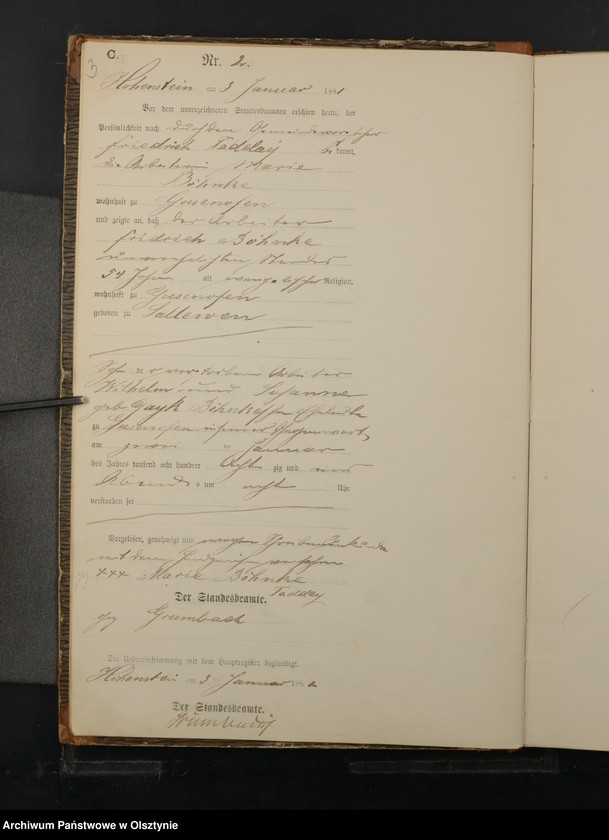 3
C.
Nr. 2.
Hohenstein am 3 Januar 1881
Vor dem unterzeichneten Standesbeamten erschien heute, der
Persönlichkeit nach durch den Gemeindevorsteher
Friedrich Tadday bekannt,
die Arbeiterin Marie
Böhnke
wohnhaft zu
und zeigte an, daß der Arbeiter
Fridrich Böhnke
unverehelichten Standes
54 Jahre alt evangelischer Religion,
wohnhaft zu
geboren zu Sallewen
Sohn der verstorbenen Arbeiter
Wilhelm und Susanne
geb Gayk Böhnkeschen Eheleute
zu
am zwei ten Januar
des Jahres tausend acht hundert acht zig und eins
Abends um acht Uhr
verstorben sei
Vorgelesen, genehmigt und wegen Schreibensunkunde
mit dem Handzeichen versehen
+++ Marie Böhnke
Tadday
Der Standesbeamte.
gez Grumbach
Die Uebereinstimmung mit dem Hauptregister beglaubigt.
Hohenstein am 3 Januar 1881
Der Standesbeamte.
Grumbach
Archiwum Państwowe w Olsztynie